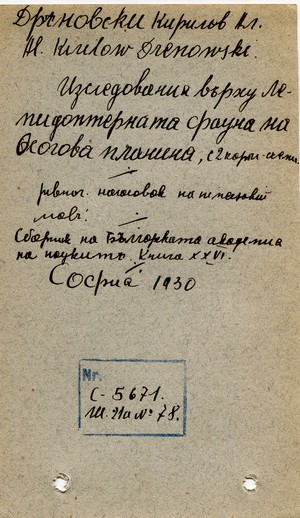 Дрѣновски Кирилов Ал.
Al. Kirilow Drenowski.
Изследования върху Ле-
пидоптерната фауна на
Осогова планина, с 2 карт.
наслов на
Сборник на Българската академия
на науките. Книга XXVI.
София 1930
Nr.
С-5671.
Ш. 11а № 78.